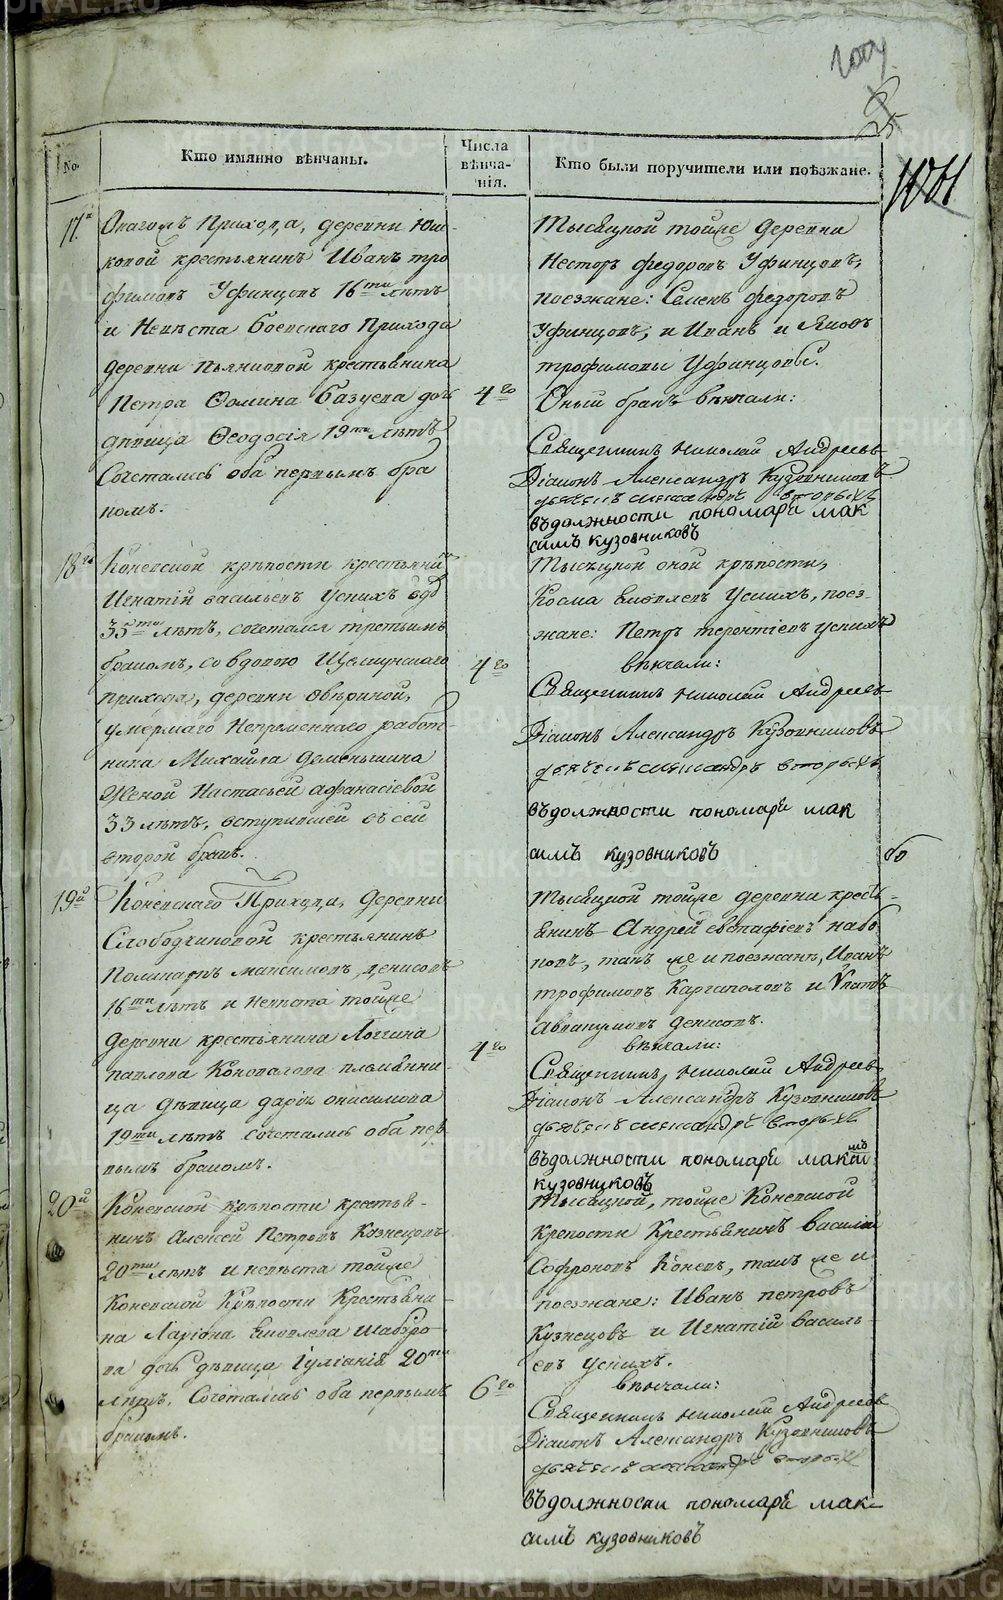 No.
Кто имянно вѣнчаны.
Числа
вѣнча-
нія.
Кто были поручители или поѣзжане.
17.
Прихода, деревни Юш-
ковой крестьянинъ Иванъ тро
фимовъ Уфинцовъ 16ти лѣтъ
и Невѣста Боевскаго Прихода
деревни Пьянковой крестьянина
Петра Ѳомина Базуева дочь
дѣвица Ѳеодосія 19ти лѣтъ
Сочетались оба первымъ бра
комъ.
4го
Тысяцкой тойже деревни
Несторъ федоровъ Уфинцовъ,
поезжане: Семенъ федоровъ
Уфинцовъ, и Иванъ и Яковъ
трофимовы Уфинцовы.
Оный бракъ вѣнчали:
Священникъ Николай Андреевъ
Діаконъ Александръ Кузовниковъ
въдолжности пономаря мак
симъ кузовниковъ
18й
Коневской крѣпости крестьянинъ
Игнатій васильевъ Успихъ вдо
35ти лѣтъ, сочетался третьимъ
бракомъ, со вдовою
прихода, деревни
умершаго Непременнаго работ-
ника Михайла Деменьшина
Женой Настасьей афанасіевой
33 лѣтъ, вступившей въ сей
второй бракъ.
4го
Тысяцкой оной крѣпости,
Косма Яковлевъ Успихъ, поез-
жане: Петръ терентіевъ Успихъ
вѣнчали:
Священникъ Николай Андреевъ
Діаконъ Александръ Кузовниковъ
въдолжности пономаря мак
симъ кузовниковъ
19й
Коневскаго Прихода, деревни
Слободчиковой крестьянинъ
Поликарпъ максимовъ денисовъ
16ти лѣтъ и Невѣста тойже
деревни крестьянина Логгина
павлова Коновалова племянни-
ца дѣвица дарья онисимова
19ти лѣтъ сочетались оба пер
вымъ бракомъ.
4го
тысяцкой тойже деревни кресть-
янинъ Андрей евстафіевъ набо
ковъ, такъ же и поезжанъ, Иванъ
трофимовъ Каргаполовъ и Ипатъ
Аввакумовъ денисовъ.
вѣнчали:
Священникъ Николай Андреевъ
Діаконъ Александръ Кузовниковъ
въдолжности пономаря максимъ
кузовниковъ
20й
Коневской крѣпости крестья-
нинъ Алексей Петровъ Кузнецовъ
20ти лѣтъ и невѣста тойже
Коневской Крѣпости Крестьяни-
на Ларіона Яковлева Шабуро-
ва дочь дѣвица Іуліанія 20ти
лѣтъ, Сочетались оба первымъ
бракомъ.
6го
Тысяцкой, тойже Коневской
крепости Крестьянинъ василій
Софроновъ Коневъ, такъ же и
поезжане: Иванъ петровъ
Кузнецовъ и Игнатій василь-
евъ Успихъ.
вѣнчали:
Священникъ Николай Андреевъ
Діаконъ Александръ Кузовниковъ
въдолжности пономаря мак-
симъ кузовниковъ
METRIKI.GASO-URAL.RU